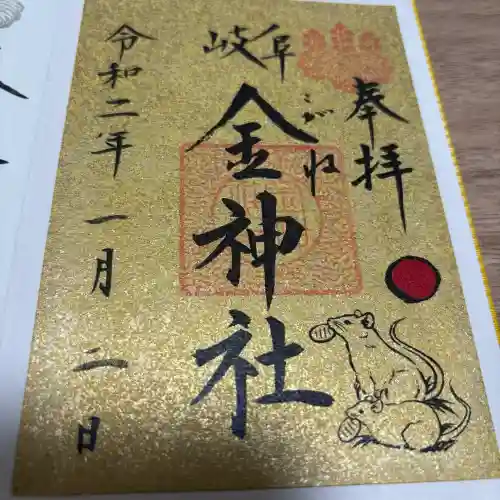 奉拝
岐阜
金神社
こがね
令和二年一月二日